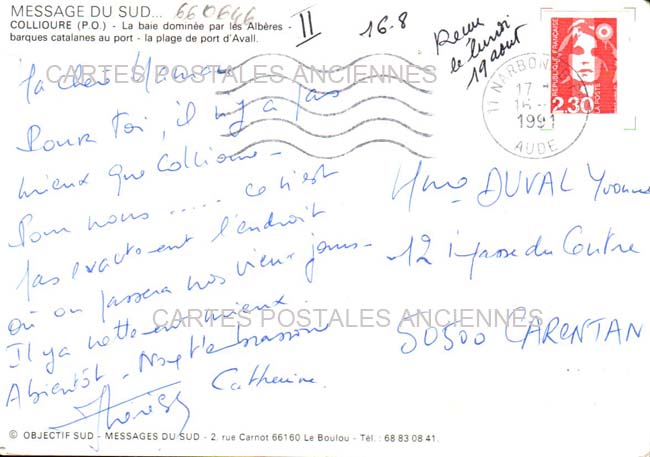 MESSAGE DU SUD... 660646
COLLIOURE (P.O.) - La baie dominée par les Albères -
barques catalanes au port - la plage de port d'Avall.
II
16-8
Reçue
le lundi
19 août
RÉPUBLIQUE FRANÇAISE
2,30 LA POSTE
11 NARBONNE
17
16
1991
AUDE
CARTES POSTALES ANCIENNES
Ma chère Maman
Pour toi, il n'y a pas
mieux que Collioure -
Pour nous ..... ce n'est
pas exactement l'endroit
où on passera nos vieux jours -
Il y a nettement mieux.
A bientôt - Nous t'embrassons
Thérèse Catherine.
Mme DUVAL Yvonne
12 impasse du Centre
50500 CARENTAN
CARTES POSTALES ANCIENNES
© OBJECTIF SUD - MESSAGES DU SUD - 2, rue Carnot 66160 Le Boulou - Tél. : 68 83 08 41.